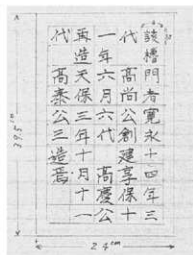 該櫓門者寛永十四年三
代 高尚公創建享保十
一年六月六代 高慶公
再造天保三年十月十一
代 高泰公三造焉
39.5cm
24cm